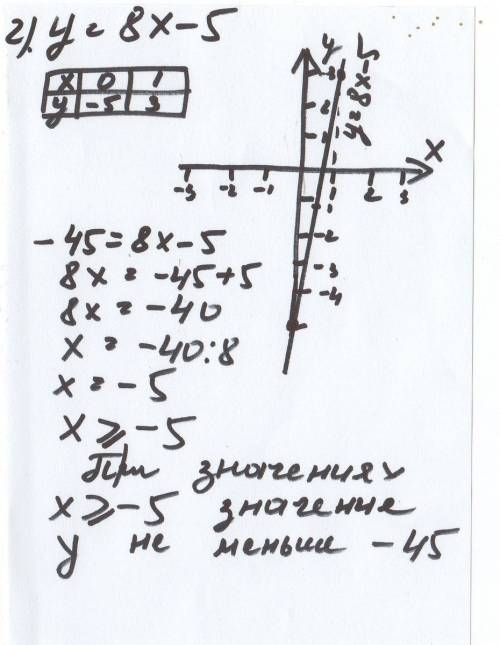 г). y = 8x-5
x 0 1
y -5 3
y
3
2
1
y = 8x-5
x
-3 -2 -1 1 2 3
-1
-2
-3
-4
-45 = 8x-5
8x = -45+5
8x = -40
x = -40:8
x = -5
x ⩾ -5
При значениях
x ⩾ -5 значение
y не меньше -45